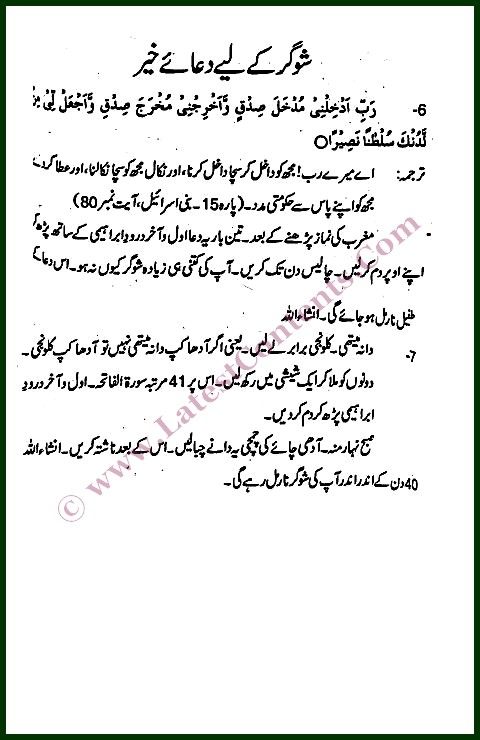 شوگر کے لیے دعائے خیر
6- رَبِّ اَدْخِلْنِیْ مُدْخَلَ صِدْقٍ وَّاَخْرِجْنِیْ مُخْرَجَ صِدْقٍ وَّاجْعَلْ لِّیْ مِنْ
لَّدُنْکَ سُلْطٰنًا نَّصِیْرًا○
ترجمہ: اے میرے رب! مجھ کو داخل کر سچا داخل کرنا، اور نکال مجھ کو سچا نکالنا، اور عطا کر
مجھ کو اپنے پاس سے حکومتی مدد۔ (پارہ 15- بنی اسرائیل، آیت نمبر 80)
- مغرب کی نماز پڑھنے کے بعد۔ تین بار یہ دعا اول و آخر درودِ ابراہیمی کے ساتھ پڑھ کر
اپنے اوپر دم کر لیں۔ چالیس دن تک کریں۔ آپ کی کتنی ہی زیادہ شوگر کیوں نہ ہو۔ اس دعا کے
طفیل نارمل ہو جائے گی۔ انشاء اللہ
7- دانہ میتھی۔ کلونجی برابر لے لیں۔ یعنی اگر آدھا کپ دانہ میتھی لیں تو آدھا کپ کلونجی۔
دونوں کو ملا کر ایک شیشی میں رکھ لیں۔ اس پر 41 مرتبہ سورۃ الفاتحہ۔ اول و آخر درود
ابراہیمی پڑھ کر دم کر دیں۔
صبح نہار منہ۔ آدھی چائے کی چمچی یہ دانے چبا لیں۔ اس کے بعد ناشتہ کریں۔ انشاء اللہ
40 دن کے اندر اندر آپ کی شوگر نارمل رہے گی۔
© www.LatestContants.Com